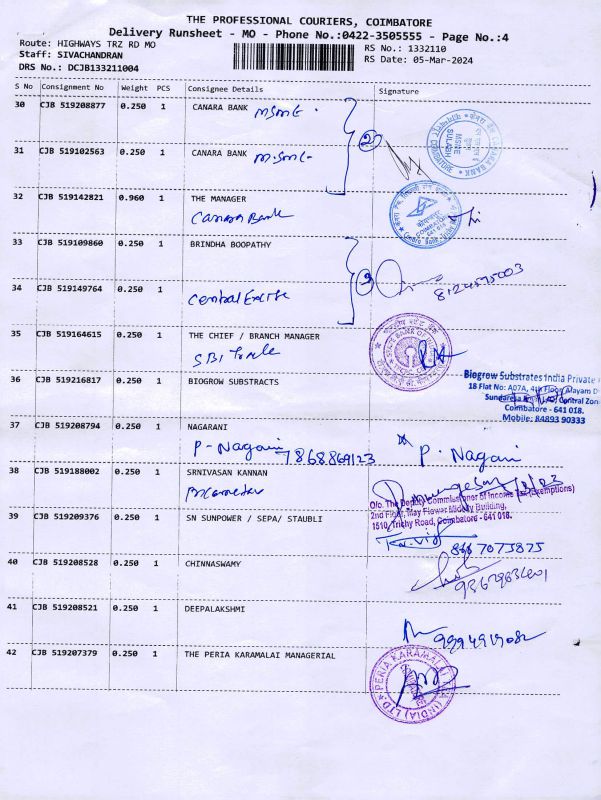 THE PROFESSIONAL COURIERS, COIMBATORE
Delivery Runsheet - MO - Phone No.:0422-3505555 - Page No.:4
Route: HIGHWAYS TRZ RD MO
RS No.: 1332110
Staff: SIVACHANDRAN
RS Date: 05-Mar-2024
DRS No.: DCJB133211004
S No Consignment No Weight PCS Consignee Details Signature
30 CJB 519208877 0.250 1 CANARA BANK MSME
31 CJB 519102563 0.250 1 CANARA BANK MSME
32 CJB 519142821 0.960 1 THE MANAGER
Canara Bank
33 CJB 519109860 0.250 1 BRINDHA BOOPATHY
8124575003
34 CJB 519149764 0.250 1 Central Excise
35 CJB 519164615 0.250 1 THE CHIEF / BRANCH MANAGER
SBI
36 CJB 519216817 0.250 1 BIOGROW SUBSTRACTS
Biogrow Substrates India Private
18 Flat No: A07A, 4th Floor,
Central Zon
Coimbatore - 641 018.
Mobile: 84893 90333
37 CJB 519208794 0.250 1 NAGARANI
P. Nagani 7868869123 P. Nagani
38 CJB 519188002 0.250 1 SRNIVASAN KANNAN
O/o. The Deputy Commissioner of Income Tax (Exemptions)
2nd Floor, May Flower Midcity Building,
1510, Trichy Road, Coimbatore - 641 018.
39 CJB 519209376 0.250 1 SN SUNPOWER / SEPA/ STAUBLI
8667073875
40 CJB 519208528 0.250 1 CHINNASWAMY
41 CJB 519208521 0.250 1 DEEPALAKSHMI
42 CJB 519207379 0.250 1 THE PERIA KARAMALAI MANAGERIAL
PERIA KARAMALAI
(INDIA) LTD.